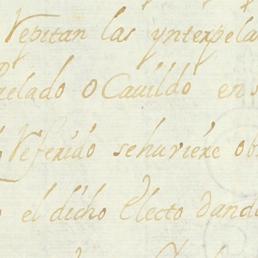 Repitan las ynterpela
relado o Cavildo en s
Referido sehuviére ob
el dicho Electo dando